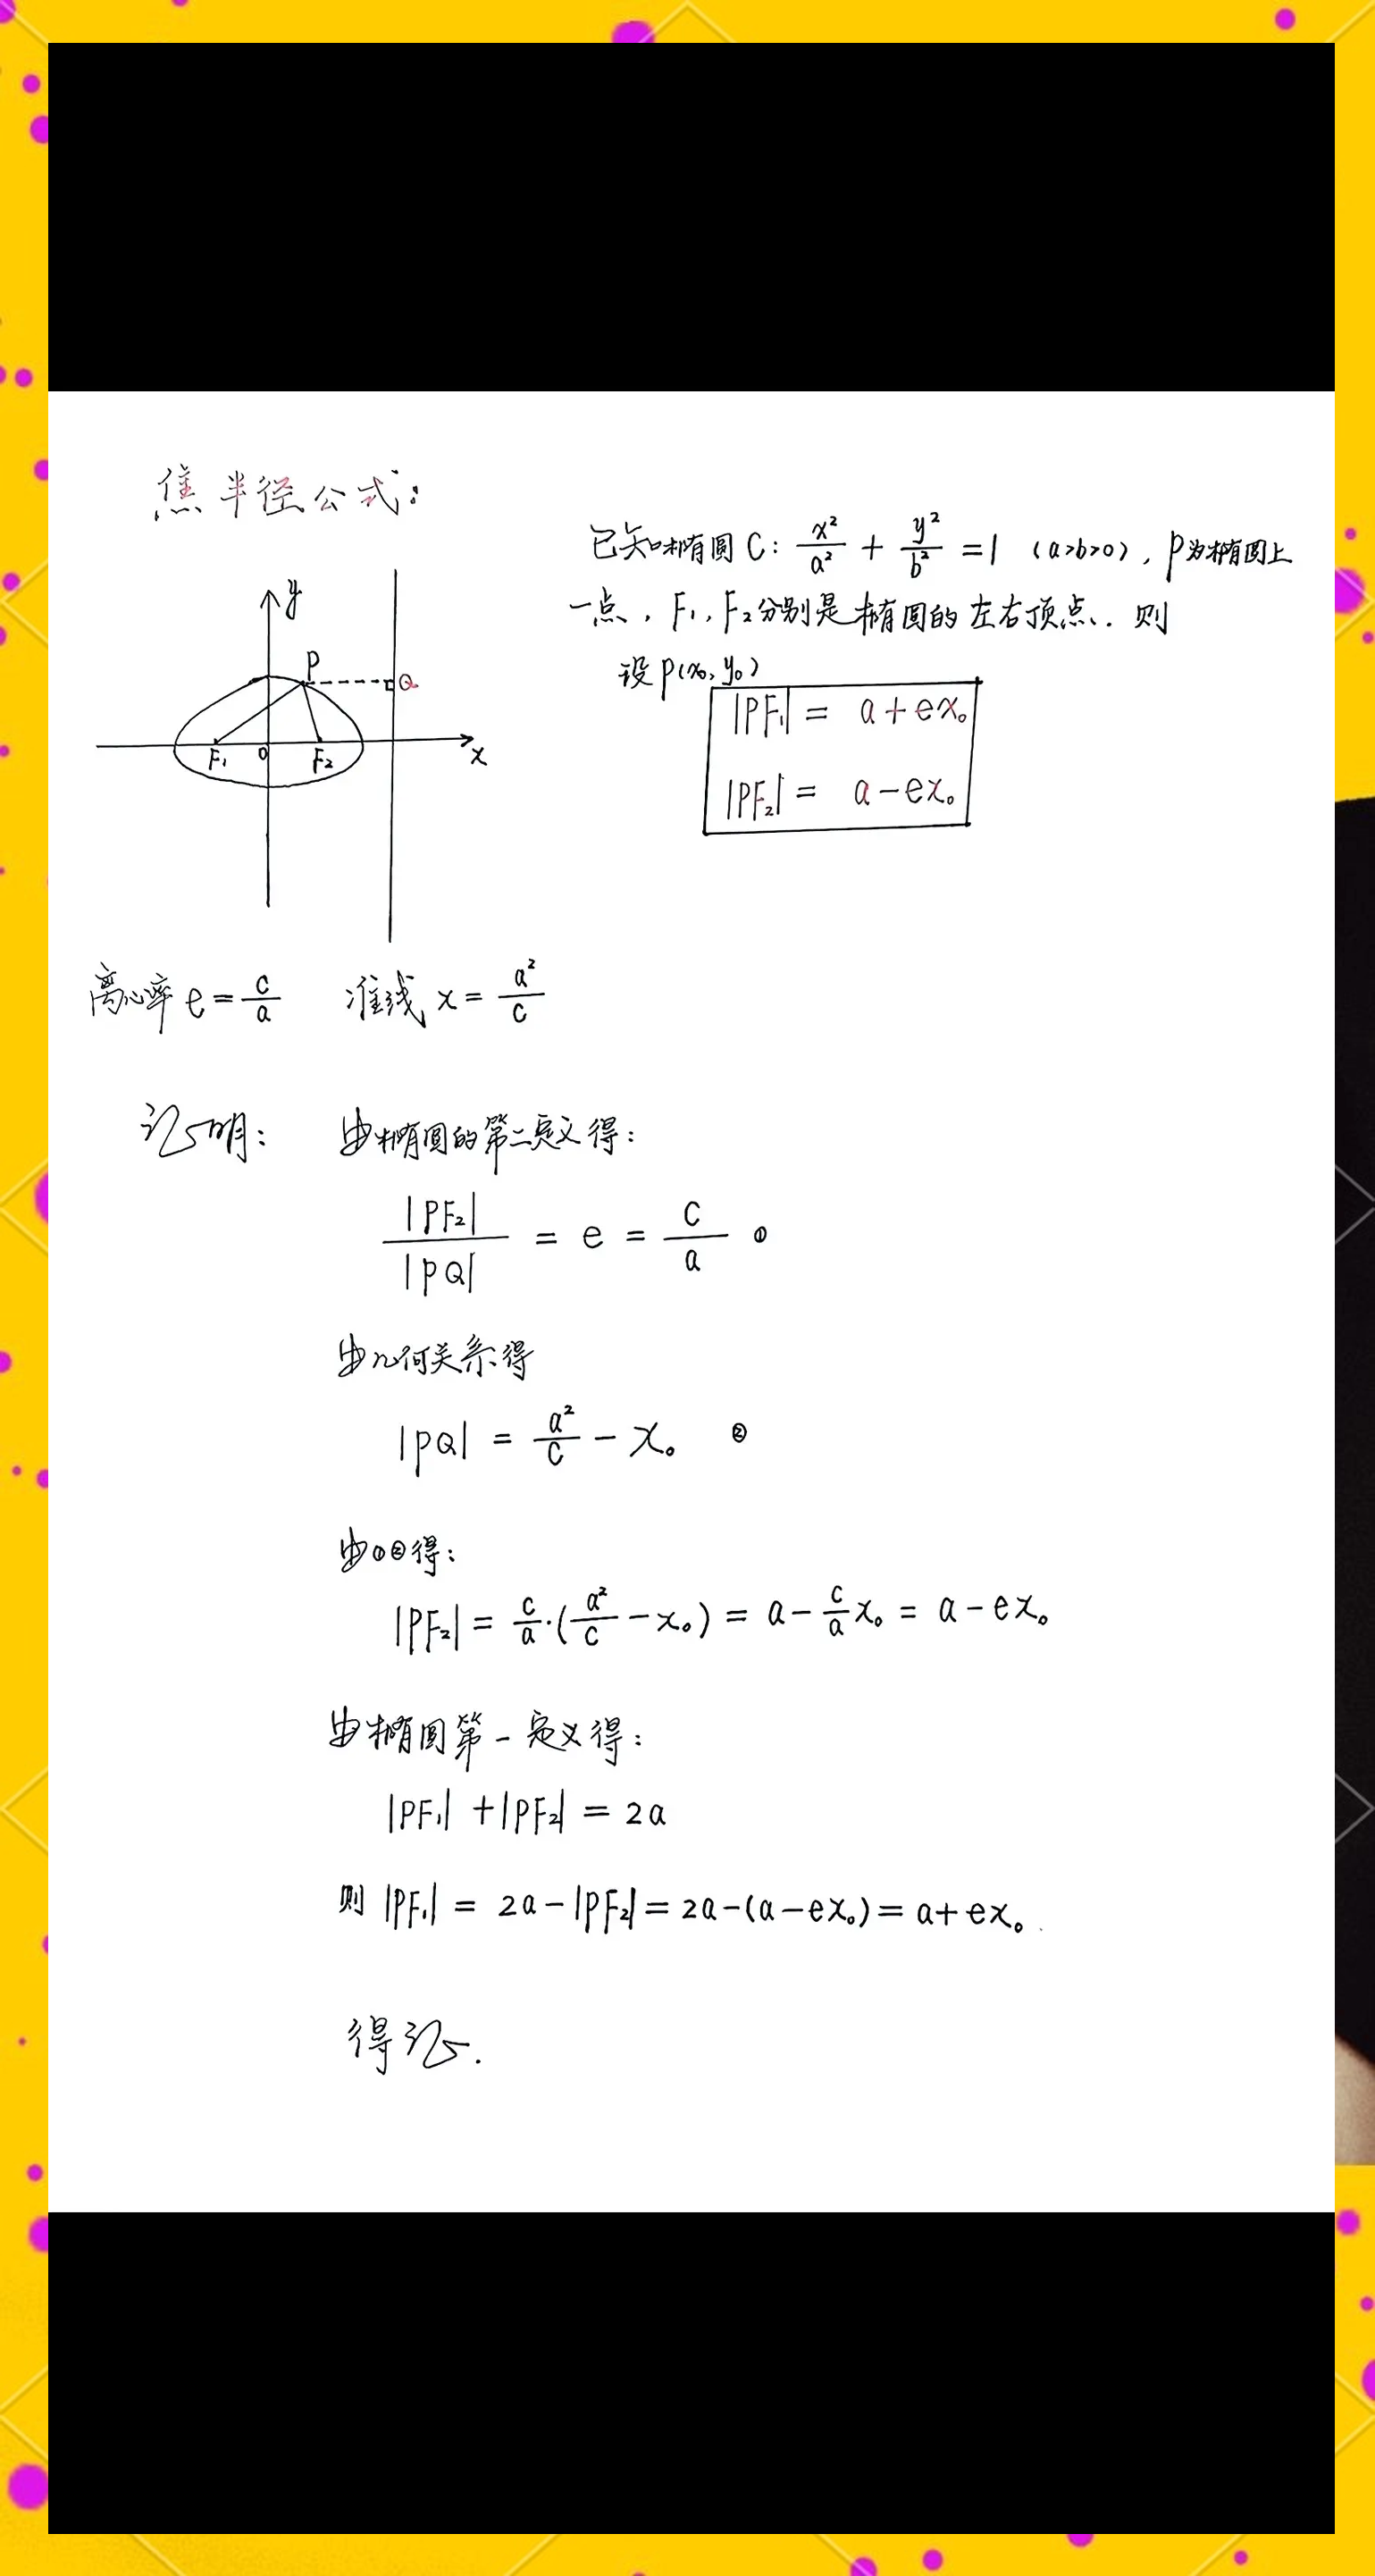 焦半径公式:
已知椭圆C: x²/a² + y²/b² = 1 (a>b>0), P为椭圆上
一点, F₁, F₂分别是椭圆的左右顶点. 则
设P(x₀, y₀)
|PF₁| = a+ex₀
|PF₂| = a-ex₀
y
P
Q
F₁ O F₂ x
离心率 e = c/a 准线 x = a²/c
证明: 由椭圆的第二定义得:
|PF₂|/|PQ| = e = c/a ①
由几何关系得
|PQ| = a²/c - x₀ ②
由①②得:
|PF₂| = c/a·(a²/c - x₀) = a - c/a x₀ = a - ex₀
由椭圆第一定义得:
|PF₁| + |PF₂| = 2a
则 |PF₁| = 2a - |PF₂| = 2a-(a-ex₀) = a+ex₀.
得证.